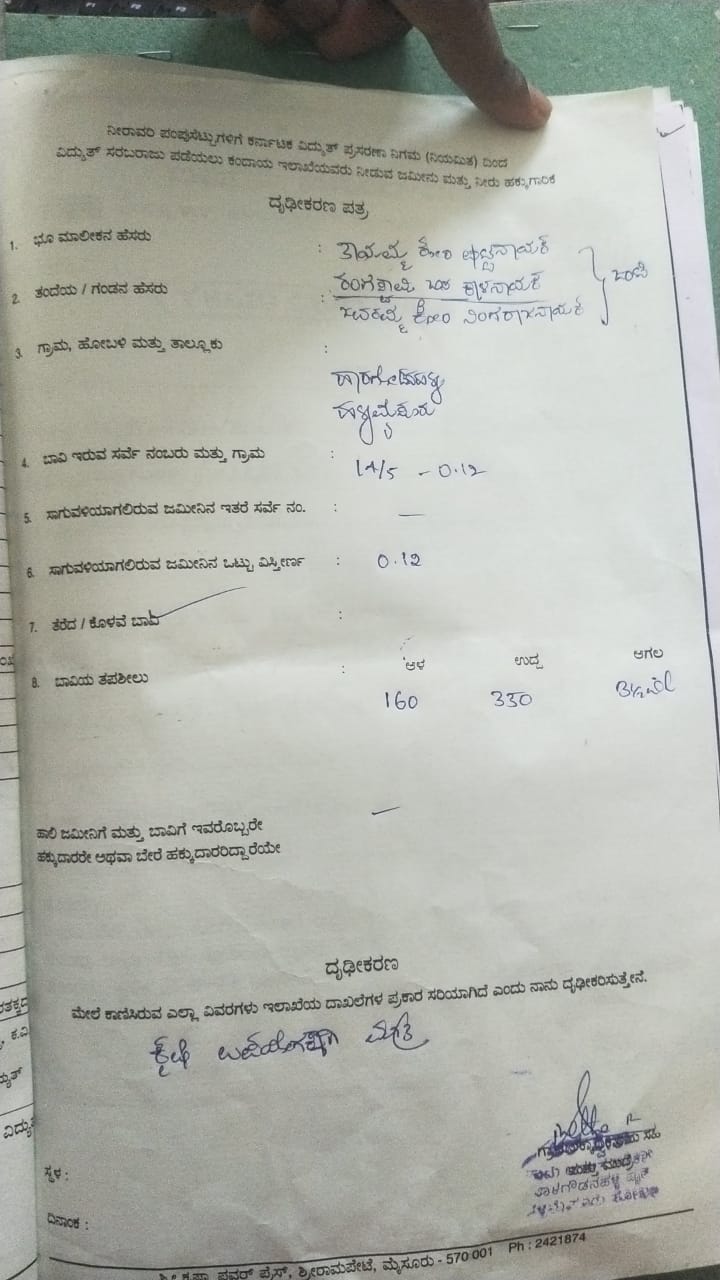 ನೀರಾವರಿ ಪಂಪುಸೆಟ್ಟುಗಳಿಗೆ ಕರ್ನಾಟಕ ವಿದ್ಯುತ್ ಪ್ರಸರಣಾ ನಿಗಮ (ನಿಯಮಿತ) ದಿಂದ
ವಿದ್ಯುತ್ ಸರಬರಾಜು ಪಡೆಯಲು ಕಂದಾಯ ಇಲಾಖೆಯವರು ನೀಡುವ ಜಮೀನು ಮತ್ತು ನೀರು ಹಕ್ಕುಗಾರಿಕೆ
ದೃಢೀಕರಣ ಪತ್ರ
1. ಭೂ ಮಾಲೀಕನ ಹೆಸರು : ತಾಯಮ್ಮ ಕೋಂ ಪುಟ್ಟನಾಯಕ
2. ತಂದೆಯ / ಗಂಡನ ಹೆಸರು : ರಂಗಸ್ವಾಮಿ ಬಿನ್ ಕಾಳನಾಯಕ ಜಂಟಿ
ಜವರಮ್ಮ ಕೋಂ ನಿಂಗರಾಜನಾಯಕ
3. ಗ್ರಾಮ, ಹೋಬಳಿ ಮತ್ತು ತಾಲ್ಲೂಕು :
4. ಬಾವಿ ಇರುವ ಸರ್ವೆ ನಂಬರು ಮತ್ತು ಗ್ರಾಮ : 14/5 - 0.12
5. ಸಾಗುವಳಿಯಾಗಲಿರುವ ಜಮೀನಿನ ಇತರೆ ಸರ್ವೆ ನಂ. : —
6. ಸಾಗುವಳಿಯಾಗಲಿರುವ ಜಮೀನಿನ ಒಟ್ಟು ವಿಸ್ತೀರ್ಣ : 0.12
7. ತೆರೆದ / ಕೊಳವೆ ಬಾವಿ :
8. ಬಾವಿಯ ತಪಶೀಲು : ಆಳ ಉದ್ದ ಅಗಲ
160 330
ಹಾಲಿ ಜಮೀನಿಗೆ ಮತ್ತು ಬಾವಿಗೆ ಇವರೊಬ್ಬರೇ —
ಹಕ್ಕುದಾರರೇ ಅಥವಾ ಬೇರೆ ಹಕ್ಕುದಾರರಿದ್ದಾರೆಯೇ
ದೃಢೀಕರಣ
ಮೇಲೆ ಕಾಣಿಸಿರುವ ಎಲ್ಲಾ ವಿವರಗಳು ಇಲಾಖೆಯ ದಾಖಲೆಗಳ ಪ್ರಕಾರ ಸರಿಯಾಗಿದೆ ಎಂದು ನಾನು ದೃಢೀಕರಿಸುತ್ತೇನೆ.
ಕೃಷಿ ಉಪಯೋಗಕ್ಕಾಗಿ ಮಾತ್ರ
ಸ್ಥಳ :
ದಿನಾಂಕ :
ಪವರ್ ಪ್ರೆಸ್, ಶ್ರೀರಾಮಪೇಟೆ, ಮೈಸೂರು - 570 001 Ph : 2421874